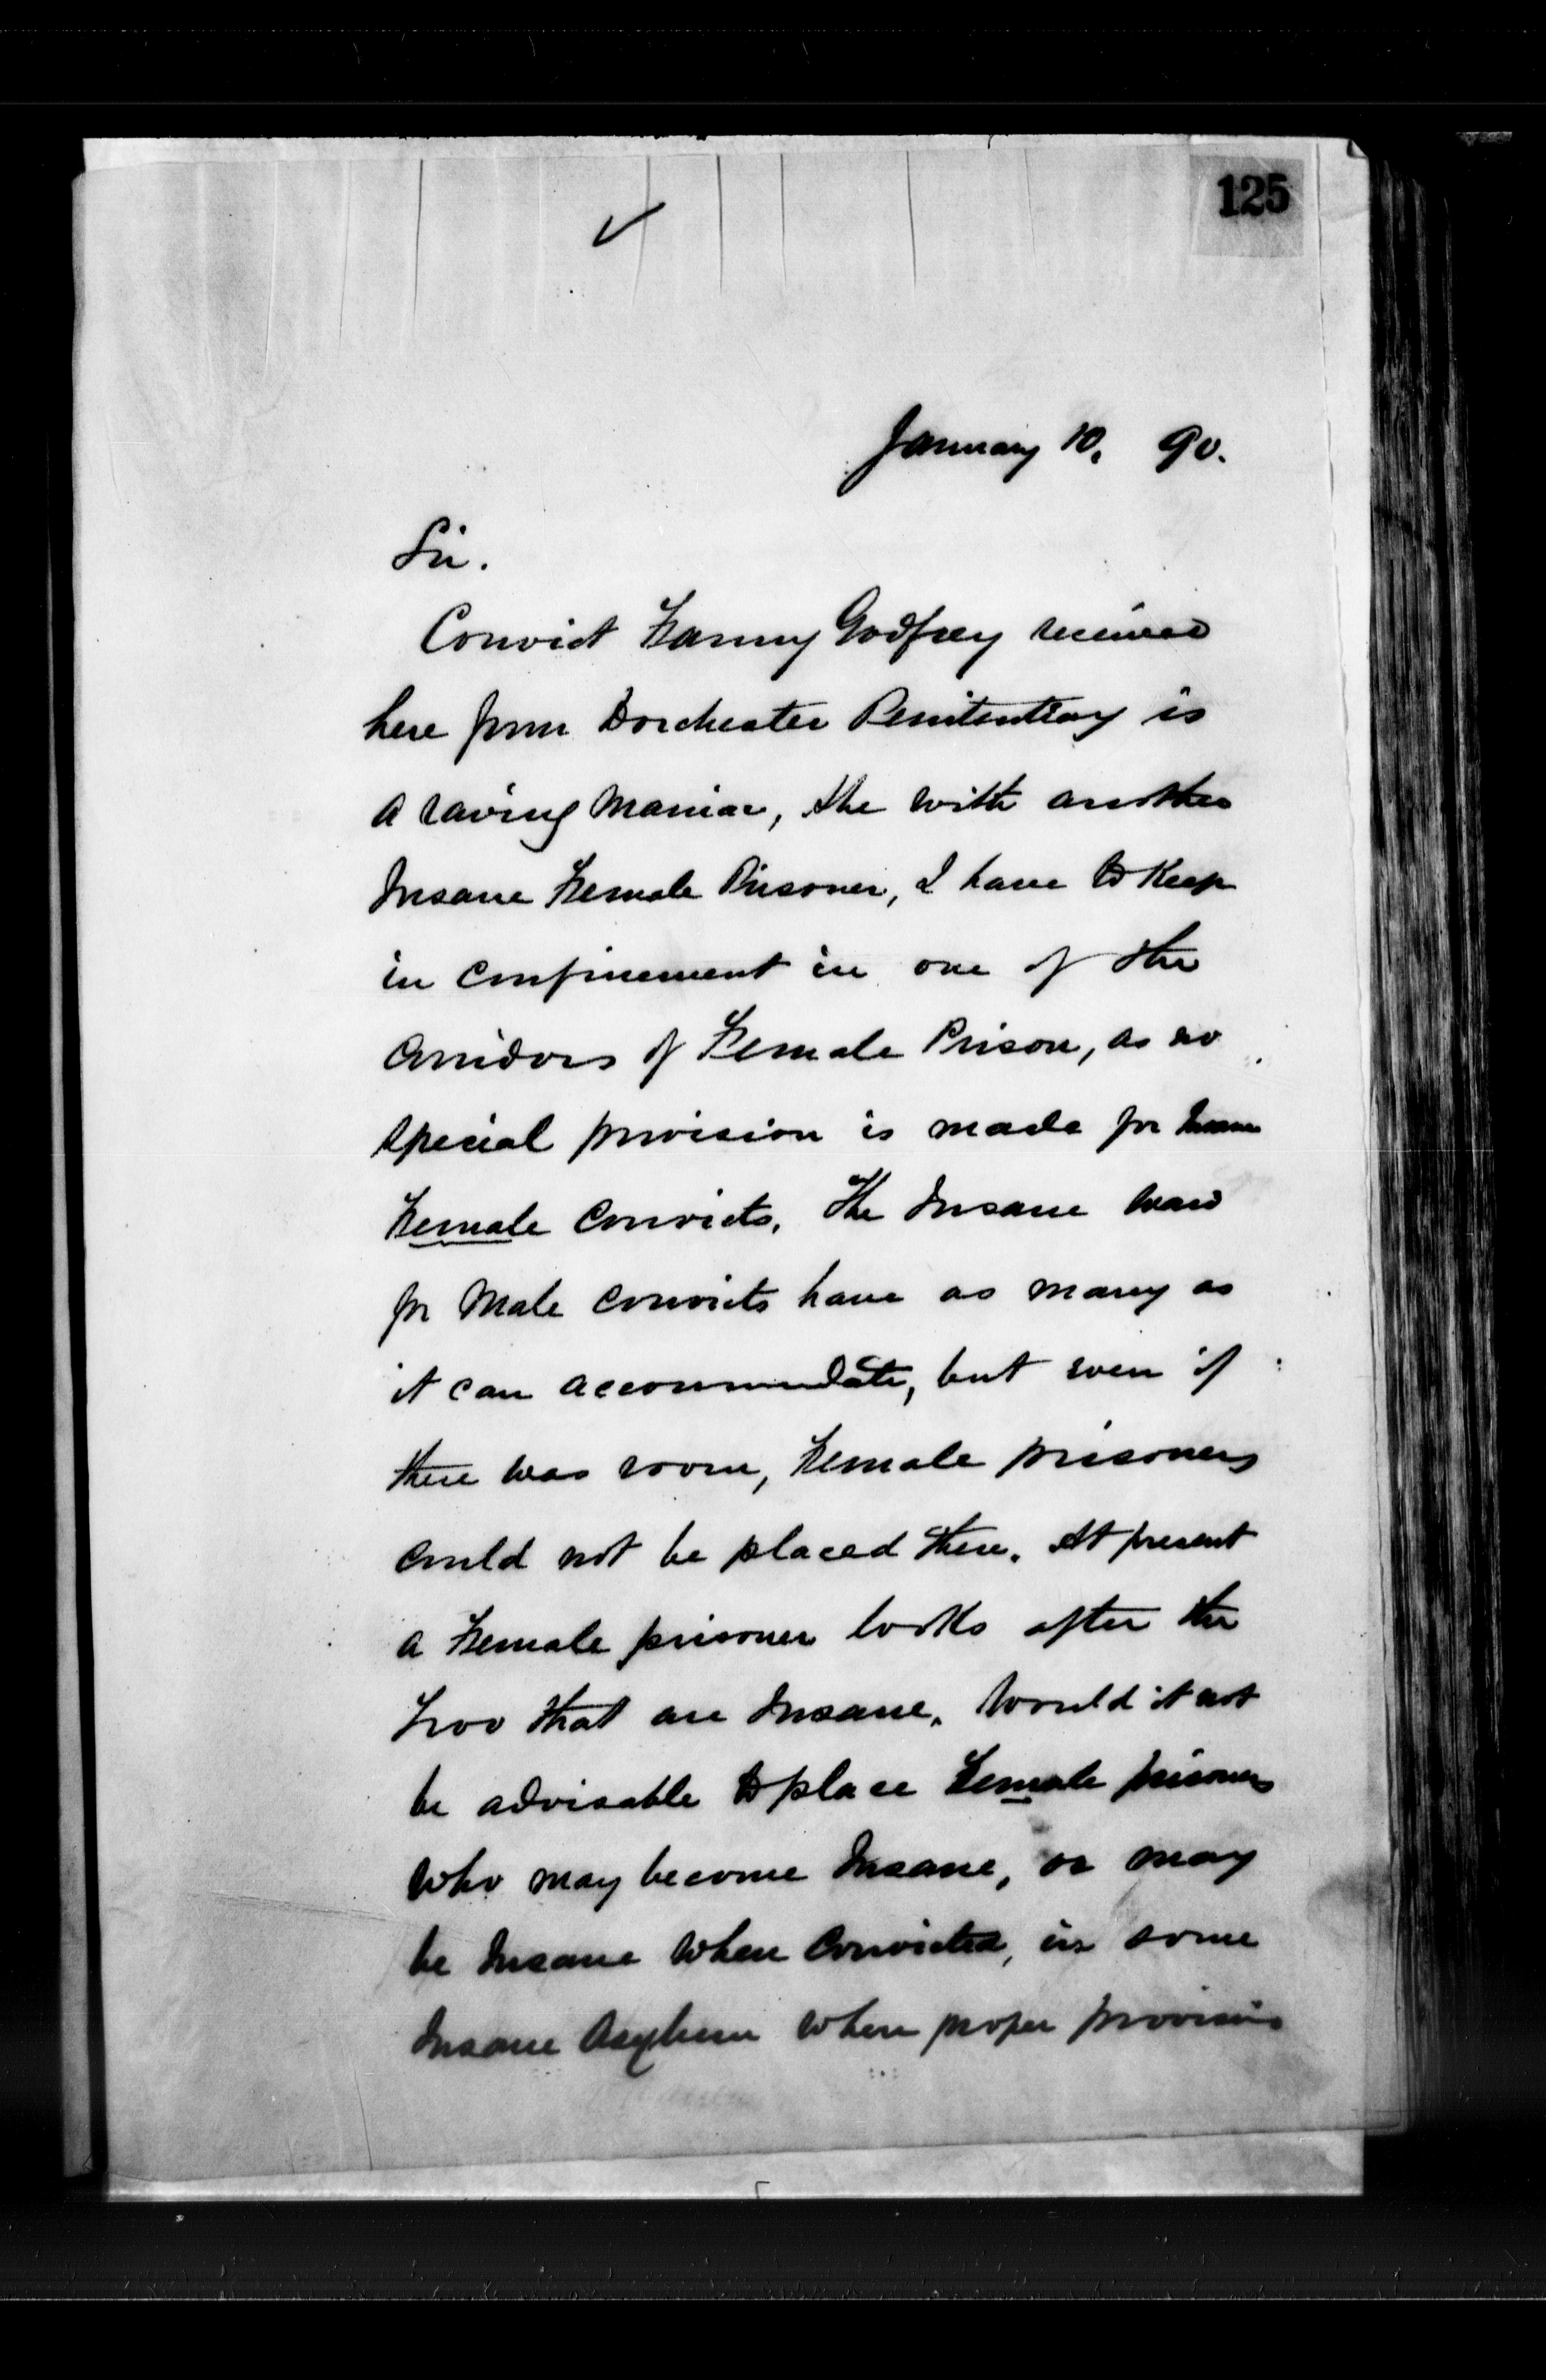 125
January 10. 90.
Sir.
Convict Fanny Godfrey received
here from Dorchester Penitentiary is
a raving Maniac, She with another
Insane Female Prisoner, I have to Keep
in confinement in one of the
Corridors of Female Prison, as no
special provision is made for Insane
Female Convicts. The Insane Ward
for Male Convicts have as many as
it can accommodate, but even if
there was room, Female prisoners
could not be placed there. At present
a Female prisoner looks after the
Two that are Insane. Would it not
be advisable to place Female prisoners
Who may become Insane, or may
be Insane When Convicted, in some
Insane Asylum Where proper provision